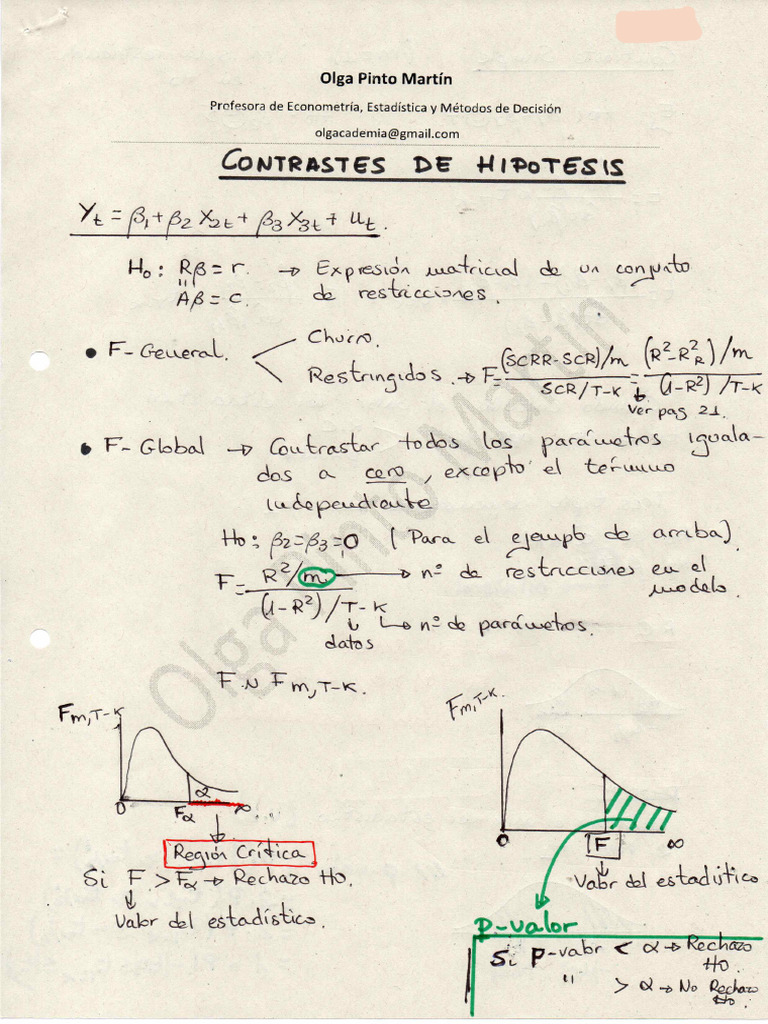 Olga Pinto Martín
Profesora de Econometría, Estadística y Métodos de Decisión
olgacademia@gmail.com
CONTRASTES DE HIPOTESIS
Yt = β1 + β2 X2t + β3 X3t + ut.
H0: Rβ = r. → Expresión matricial de un conjunto
" Aβ = c. de restricciones.
• F-General. Churro.
Restringidos. → F = (SCRR-SCR)/m / SCR/T-K = (R²-R²R)/m / (1-R²)/T-K
Ver pag 21.
• F-Global → Contrastar todos los parámetros iguala-
dos a cero, excepto el término
independiente
H0: β2 = β3 = 0 (Para el ejemplo de arriba).
F = R²/m / (1-R²)/T-K
m → nº de restricciones en el
modelo.
→ nº de parámetros.
datos
F ~ Fm,T-K.
Fm,T-K
0 Fα α ∞
Región Crítica
Si F > Fα → Rechazo H0.
Valor del estadístico.
Fm,T-K.
0 F ∞
Valor del estadístico
P-valor
Si P-valor < α → Rechazo
H0.
" > α → No Rechazo
H0.
Olga Pinto Martín